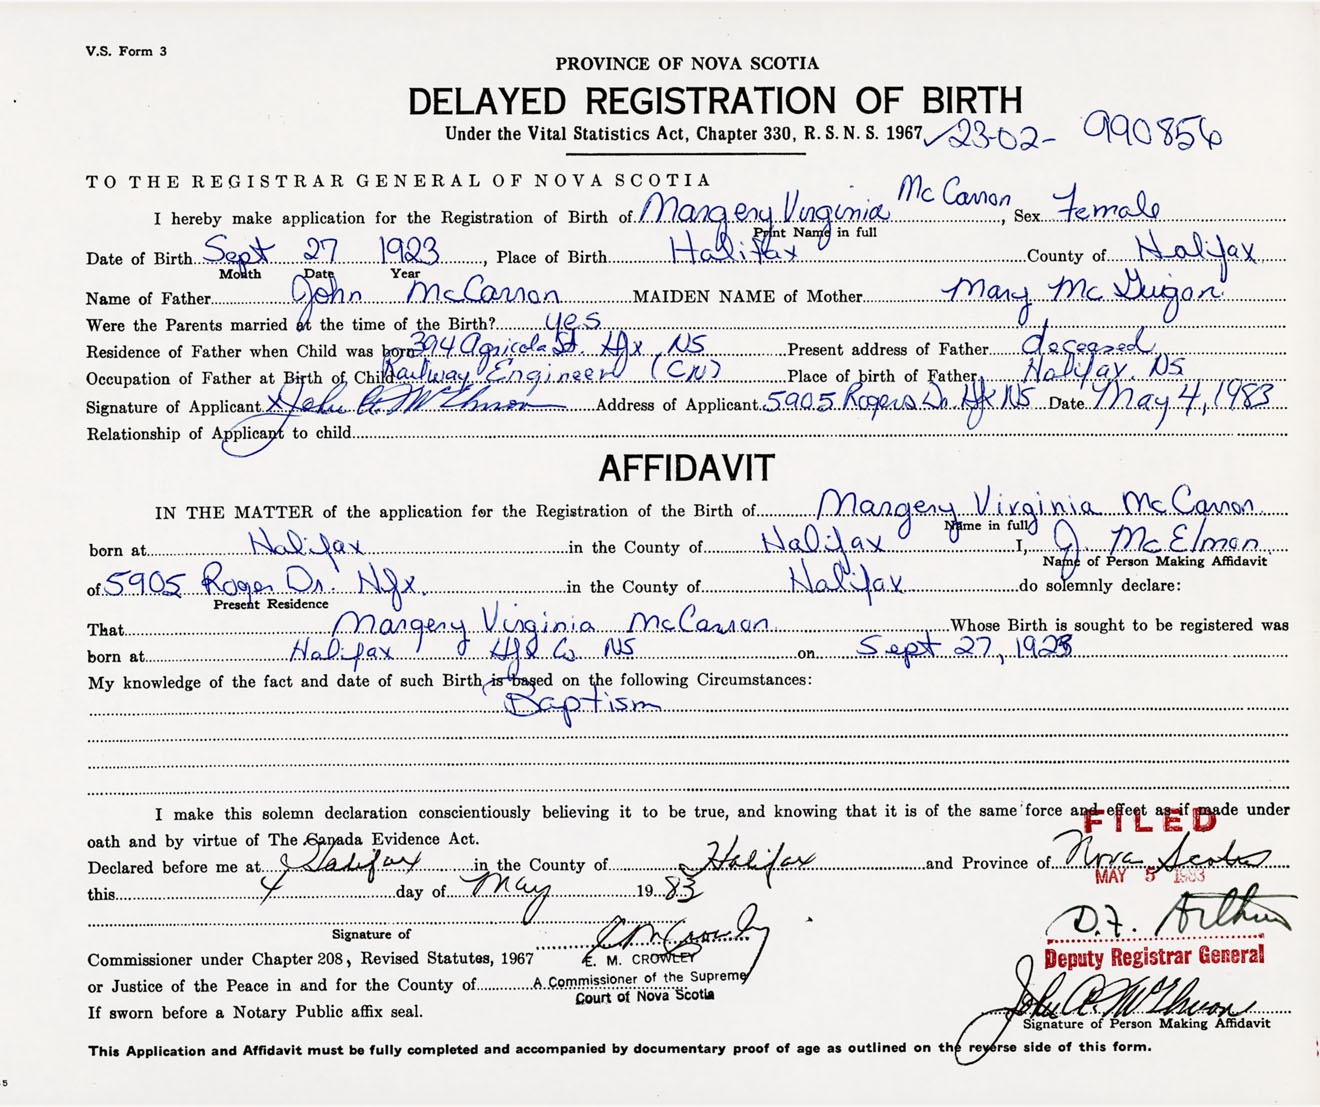 V.S. Form 3
PROVINCE OF NOVA SCOTIA
DELAYED REGISTRATION OF BIRTH
Under the Vital Statistics Act, Chapter 330, R.S.N.S. 1967 23-02- 990856
TO THE REGISTRAR GENERAL OF NOVA SCOTIA
I hereby make application for the Registration of Birth of Margery Virginia McCarron, Sex Female
Print Name in full
Date of Birth Sept 27 1923, Place of Birth Halifax County of Halifax
Month Date Year
Name of Father John McCarron MAIDEN NAME of Mother Mary McGuigan
Were the Parents married at the time of the Birth? yes
Residence of Father when Child was born 394 Agricola St. Hfx NS Present address of Father deceased
Occupation of Father at Birth of Child Railway Engineer (CN) Place of birth of Father Halifax NS
Signature of Applicant x John A. Address of Applicant 5905 Rogers Dr Hfx NS Date May 4, 1983
Relationship of Applicant to child
AFFIDAVIT
IN THE MATTER of the application for the Registration of the Birth of Margery Virginia McCarron
Name in full
born at Halifax in the County of Halifax I, J. McElmon
Name of Person Making Affidavit
of 5905 Roger Dr. Hfx. in the County of Halifax do solemnly declare:
Present Residence
That Margery Virginia McCarron Whose Birth is sought to be registered was
born at Halifax Hfx Co NS on Sept 27, 1923
My knowledge of the fact and date of such Birth is based on the following Circumstances:
Baptism
I make this solemn declaration conscientiously believing it to be true, and knowing that it is of the same force and effect as if made under
FILED
oath and by virtue of The Canada Evidence Act.
Declared before me at Halifax in the County of Halifax and Province of Nova Scotia
MAY 5 1983
this 4 day of May 1983
D.F. Arthur
Signature of
Commissioner under Chapter 208, Revised Statutes, 1967 E. M. CROWLEY
Deputy Registrar General
or Justice of the Peace in and for the County of A Commissioner of the Supreme
Court of Nova Scotia
If sworn before a Notary Public affix seal.
John A.
Signature of Person Making Affidavit
This Application and Affidavit must be fully completed and accompanied by documentary proof of age as outlined on the reverse side of this form.